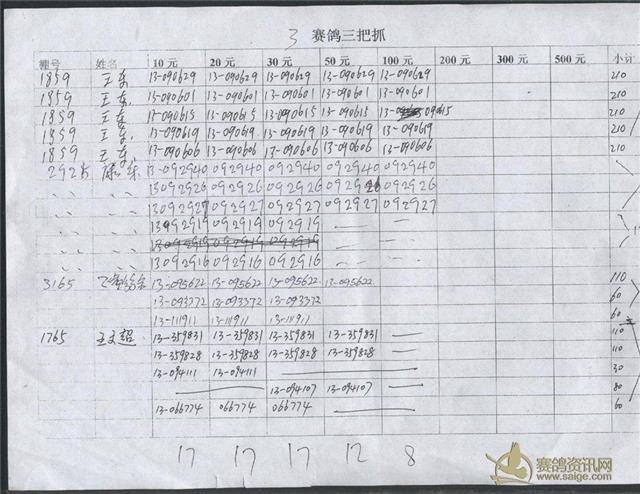 3 赛鸽三把抓
棚号 姓名 10 元 20 元 30 元 50 元 100 元 200 元 300 元 500 元 小计
1859 王东 13-090629 13-090629 13-090629 13-090629 13-090629 210
1859 王东 13-090601 13-090601 13-090601 13-090601 13-090601 210
1859 王东 13-090615 13-090615 13-090615 13-090615 13- 090615 210
1859 王东 13-090619 13-090619 13-090619 13-090619 13-090619 210
1859 王东 13-090606 13-090606 13-090606 13-090606 13-090606 210
13-092940 092940 092940 092940 092940
13092926 092926 092926 092926 092926
13092927 092927 092927 092927 092927
13092919 092919 092919
13092916 092916 092916
3165 13-095622 13-095622 13-095622 13-095622 110
13-093372 13-093372 13-093372 60
13-111911 13-111911 13-111911 60
1765 王文超 13-359831 13-359831 13-359831 13-359831 110
13-359828 13-359828 13-359828 13-359828 110
13-094111 13-094111 30
13-094107 13-094107 80
13-066774 066774 066774 60
17 17 17 12 8
赛鸽资讯网
www.saige.com